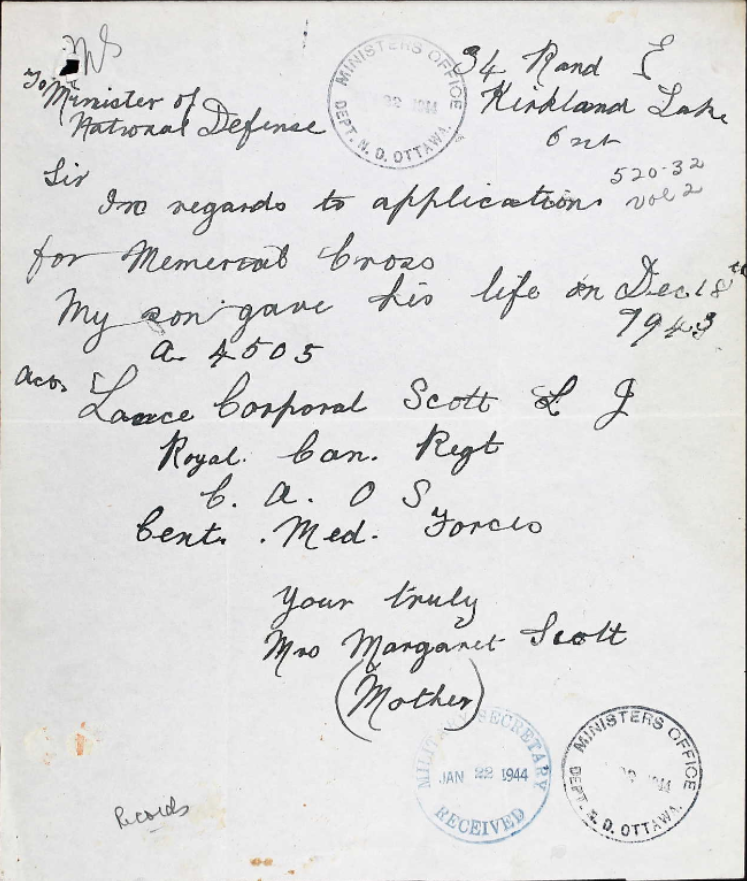 MINISTERS OFFICE
22 1944
DEPT. N. D. OTTAWA.
34 Rand E
Kirkland Lake
Ont
To Minister of
National Defense
520-32
vol 2
Sir
In regards to application
for Memerial Cross
My son gave his life on Dec 18th
1943
A. 4505
Act.
Lance Corporal Scott L J
Royal. Can. Regt
C. A. O S
Cent. . Med. Forces
Your truly
Mrs Margaret Scott
(Mother)
MILITARY SECRETARY
JAN 22 1944
RECEIVED
MINISTERS OFFICE
22 1944
DEPT. N. D. OTTAWA.
Records